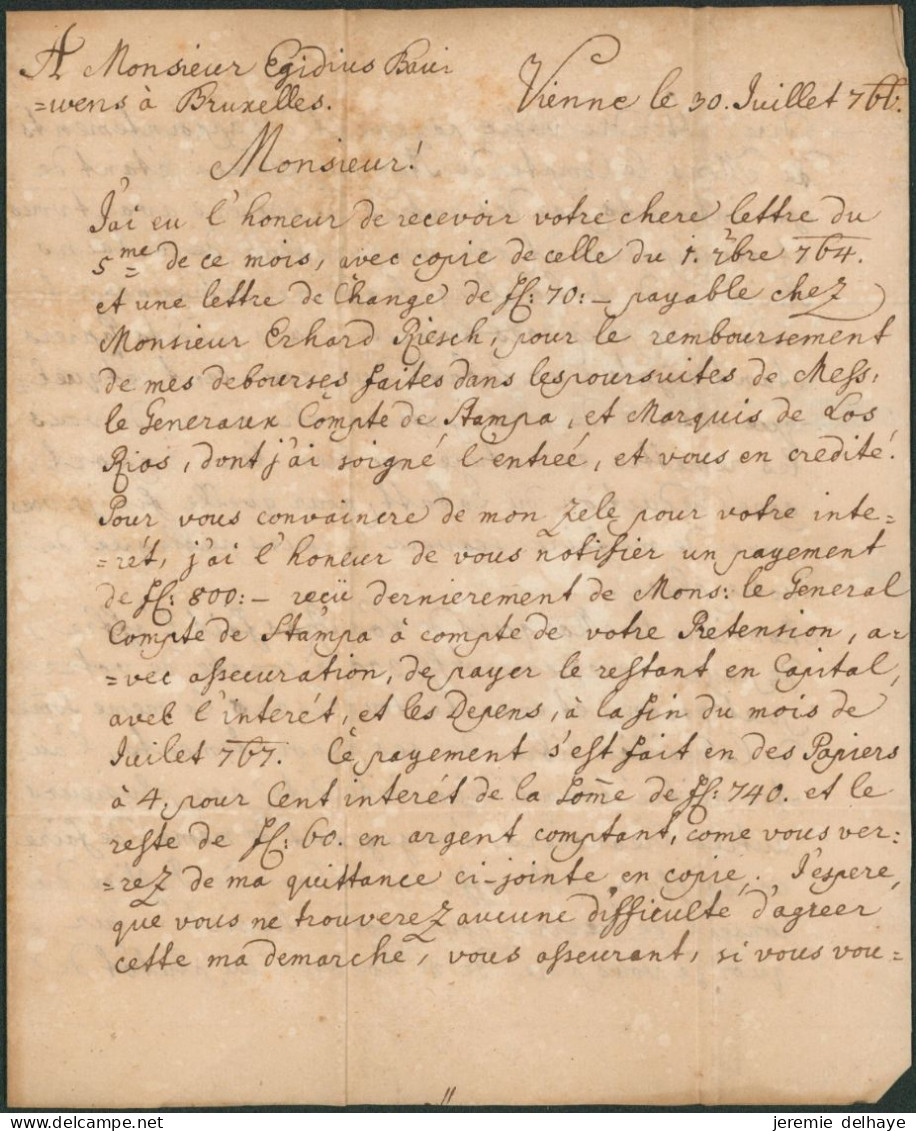 A Monsieur Egidius Baui
=wens à Bruxelles.
Vienne le 30. Juillet 766.
Monsieur!
J'ai eu l'honeur de recevoir votre chere lettre du
5me de ce mois, avec copie de celle du 1. 9bre 764.
et une lettre de Change de fl: 70:- payable chez
Monsieur Erhard Riesch, pour le remboursement
de mes debourses faites dans les poursuites de Mess:
le Generaux Compte de Stampa, et Marquis de Los
Rios, dont j'ai soigné l'entreé, et vous en credité.
Pour vous convaincre de mon zele pour votre inte=
=rét, j'ai l'honeur de vous notifier un payement
de fl: 800:- reçü dernierement de Mons: le General
Compte de Stampa à compte de votre Retension, a=
=vec asseeuration, de payer le restant en Capital,
avec l'interét, et les Depens, à la fin du mois de
Juilet 767. Ce payement s'est fait en des Papiers
à 4. pour Cent interét de la som̄e de fl: 740. et le
reste de fl: 60. en argent comptant, come vous ver=
=rez de ma quittance ci-jointe en copie. J'espere,
que vous ne trouverez aucune difficulté d'agreer
cette ma demarche, vous asseurant, si vous vou=
jeremie delhaye